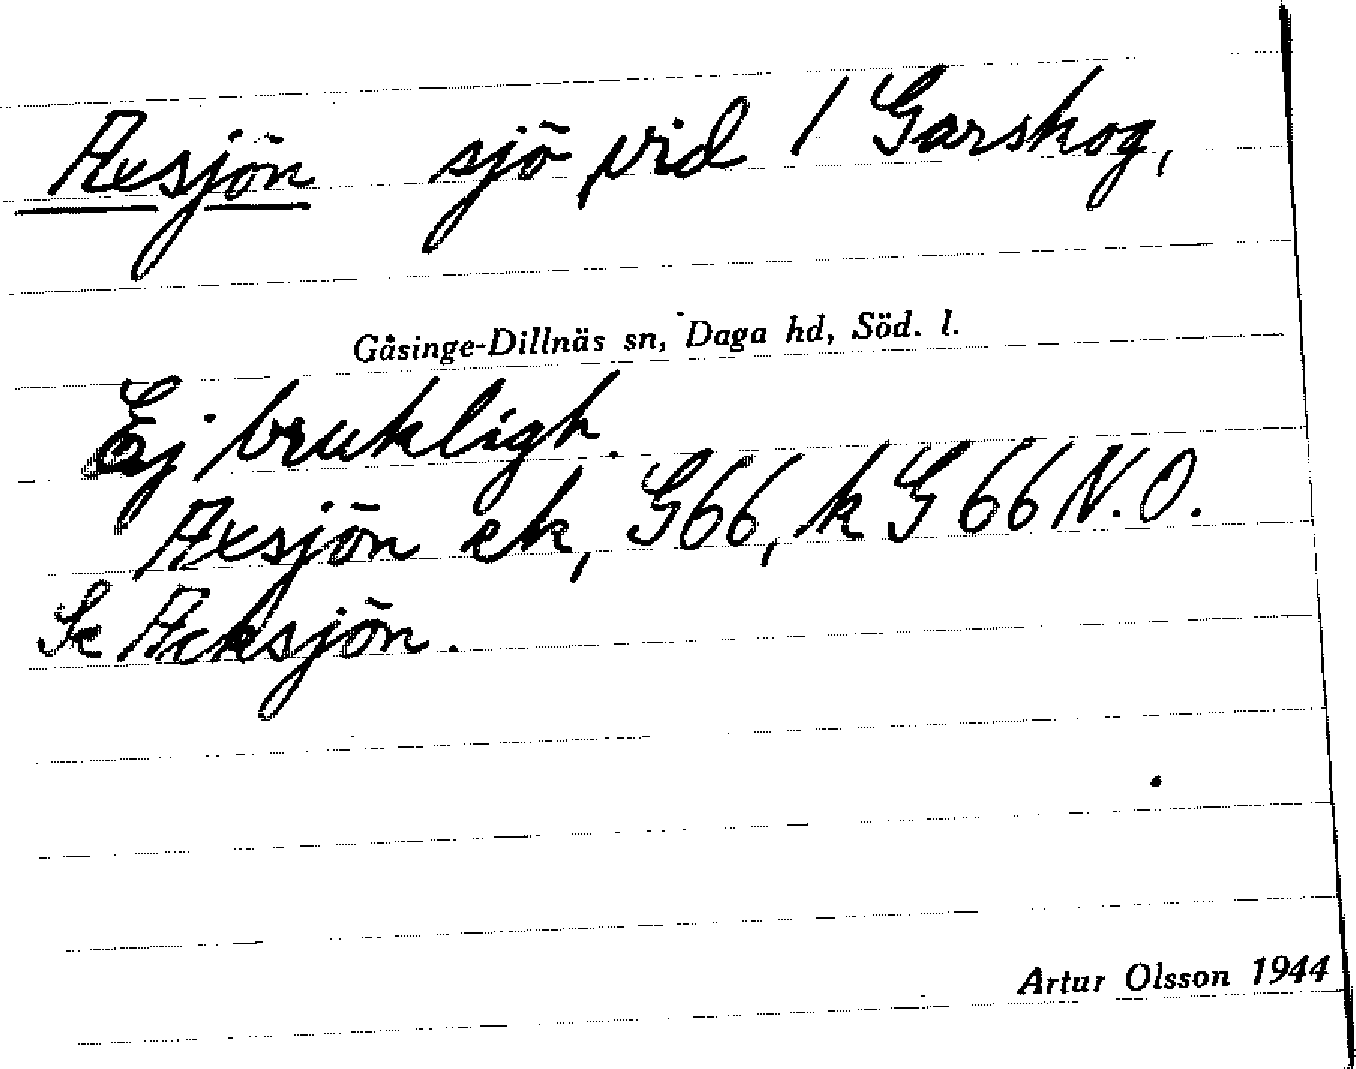 Axsjön sjö vid / Garskog,
Gåsinge-Dillnäs sn, Daga hd, Söd. l.
Ej brukligh.
Axsjön ek, G66, k G 66 N.O.
Se Acksjön.
Artur Olsson 1944